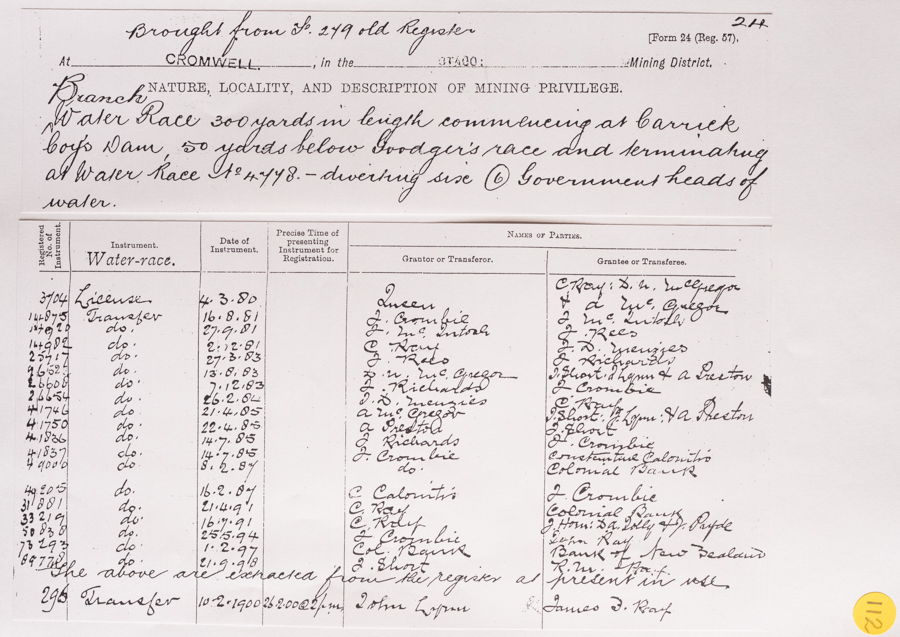 24
Brought from Fo. 279 old Register
[Form 24 (Reg. 57).
At CROMWELL. , in the OTAGO: Mining District.
NATURE, LOCALITY, AND DESCRIPTION OF MINING PRIVILEGE.
Branch
Water Race 300 yards in length commencing at Carrick
Coy's Dam, 50 yards below Goodger's race and terminating
at Water Race No 4778. – diverting six (6) Government heads of
water.
Registered No. of Instrument. Instrument. Date of Instrument. Precise Time of presenting Instrument for Registration. NAMES OF PARTIES.
Water-race. Grantor or Transferor. Grantee or Transferee.
C Ray: D. N. McGregor
3704 License 4.3.80 Queen & A McGregor
14875 Transfer 16.8.81 J. Crombie J McIntosh
14920 do. 27.9.81 J. McIntosh J Rees
14982 do. 2.12.81 C Ray J. D. Menzies
25717 do. 27.3.83 J. Rees J Richards
do. 13.8.83 D. N. McGregor J. Short: J Lynn & A Preston
26606 do. 7.12.83 J. Richards J Crombie
26654 do. 26.2.84 J. D. Menzies C. Ray
41746 do. 21.4.85 A McGregor J. Short: J. Lynn: & A Preston
41750 do. 22.4.85 A Preston J. Short
41836 do. 14.7.85 J Richards J. Crombie
41837 do. 14.7.85 J. Crombie Constantine Calonitis
49006 do 8.2.87 do. Colonial Bank
49205 do. 16.2.87 C Calonitis J Crombie
31881 do. 21.4.91 C. Ray Colonial Bank
33219 do. 16.7.91 C. Ray J. Horn: D.A. Jolly &
50838 do. 25.5.94 J Crombie John Ray
73293 do: 1.2.97 Col. Bank Bank of New Zealand
do. 21.9.98 J. Short R. M. Ray.
The above are extracted from the register at present in use
296 Transfer 10.2.1900 26.2.00 @ 2 p.m. John Lynn James D. Ray
112